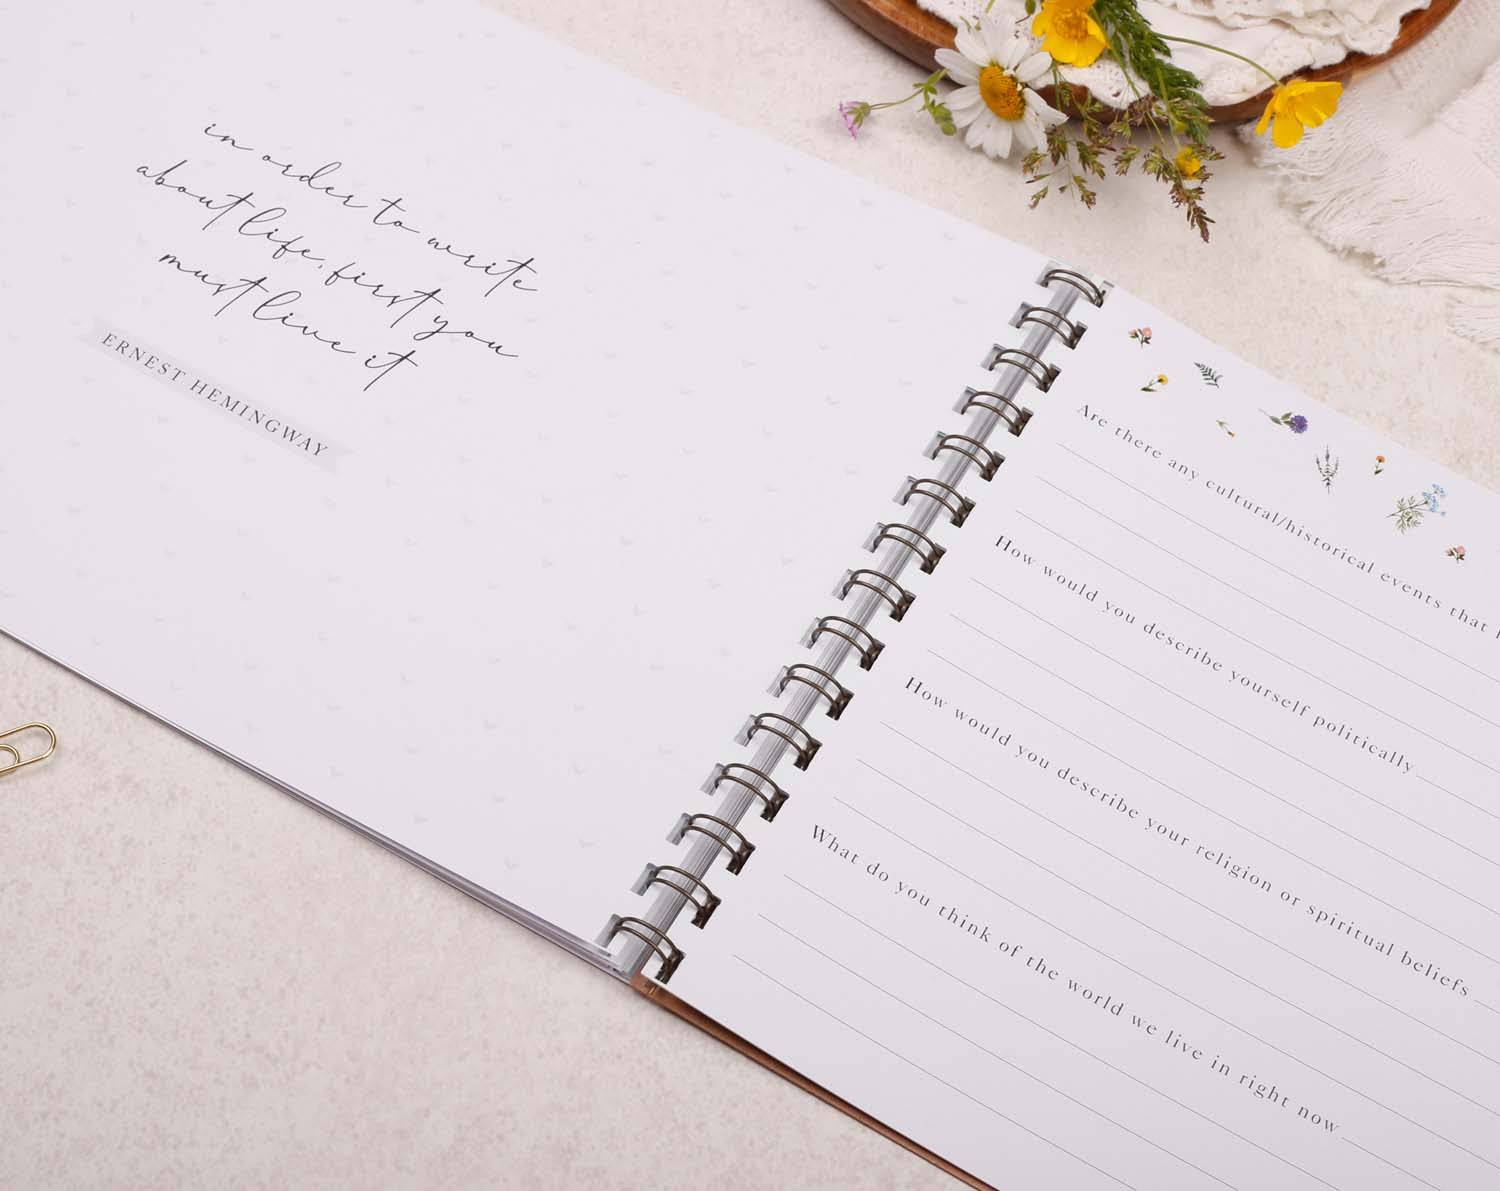 in order to write
about life, first you
must live it
ERNEST HEMINGWAY
Are there any cultural/historical events that
How would you describe yourself politically
How would you describe your religion or spiritual beliefs
What do you think of the world we live in right now